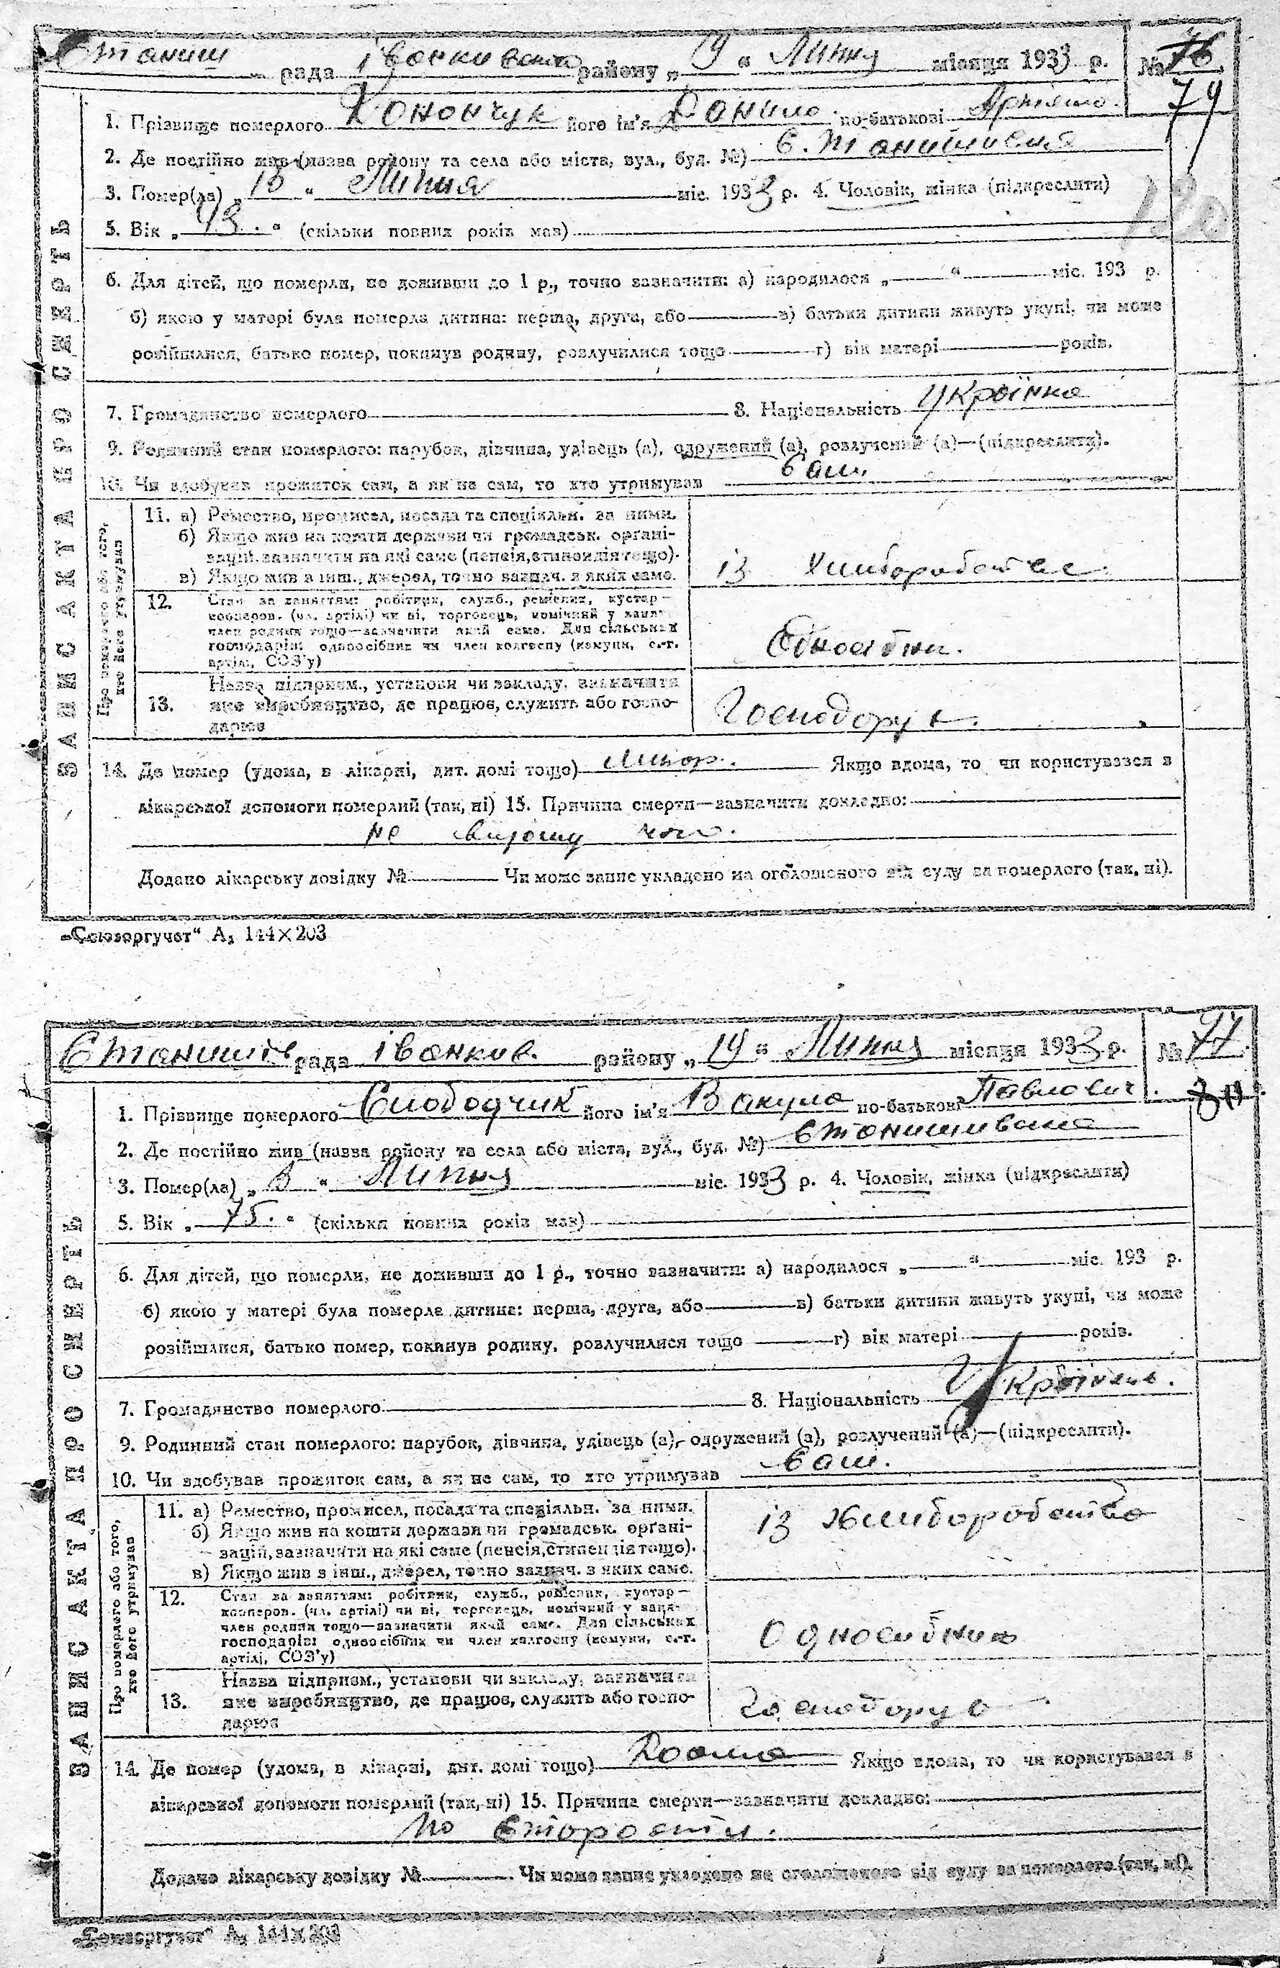 Станиш рада Іванківського району „19“ Липня місяця 1933 р. № 76
79
1. Прізвище померлого Конончук його ім'я Данило по-батькові
2. Де постійно жив (назва району та села або міста, вул., буд. №) с. Станишивка
3. Помер(ла) „18“ Липня міс. 1933 р. 4. Чоловік, жінка (підкреслити)
120
5. Вік „43.“ (скільки повних років мав)
6. Для дітей, що померли, не доживши до 1 р., точно зазначити: а) народилося „ “ міс. 193 р.
б) якою у матері була померла дитина: перша, друга, або в) батьки дитини живуть укупі, чи може
розійшлися, батько помер, покинув родину, розлучилися тощо г) вік матері років.
7. Громадянство померлого 8. Національність Україна
9. Родинний стан померлого: парубок, дівчина, удівець (а), одружений (а), розлучений (а)—(підкреслити).
10. Чи здобував прожиток сам, а як не сам, то хто утримував сам.
ЗАПИС АКТА ПРО СМЕРТЬ
Про померлого або того, хто його утримував
11. а) Ремество, промисел, посада та спеціяльн. за ними.
б) Якщо жив на кошти держави чи громадськ. органі-
зацій, зазначити на які саме (пенсія, стипендія тощо).
в) Якщо жив з інш. джерел, точно зазнач. з яких саме.
із хлиборобства
12. Стан за заняттям: робітник, служб., ремісник, кустар—
кооперов. (чл. артілі) чи ні, торговець, помічний у занят.
член родини тощо—зазначити який саме. Для сільських
господарів: одноосібник чи член колгоспу (комуни, с.-г.
артілі, СОЗ'у)
Едноибни.
13. Назва підприєм., установи чи закладу, зазначити
яке виробництво, де працює, служить або госпо-
дарює
Господорує.
14. Де помер (удома, в лікарні, дит. домі тощо) Якщо вдома, то чи користувався з
лікарської допомоги померлий (так, ні) 15. Причина смерти—зазначити докладно:
не
Додано лікарську довідку № Чи може запис укладено на оголошеного від суду за померлого (так, ні).
„Союзоргучет“ А5 144×203
Станишів рада Іванків. району „19“ Липня місяця 1933 р. № 77.
80
1. Прізвище померлого Слободчик його ім'я Вакула по-батькові Павлович.
2. Де постійно жив (назва району та села або міста, вул., буд. №) Станишивка
3. Помер(ла) „8“ Липня міс. 1933 р. 4. Чоловік, жінка (підкреслити)
5. Вік „75.“ (скільки повних років мав)
6. Для дітей, що померли, не доживши до 1 р., точно зазначити: а) народилося „ “ міс. 193 р.
б) якою у матері була померла дитина: перша, друга, або в) батьки дитини живуть укупі, чи може
розійшлися, батько помер, покинув родину, розлучилися тощо г) вік матері років.
7. Громадянство померлого 8. Національність Україна.
9. Родинний стан померлого: парубок, дівчина, удівець (а), одружений (а), розлучений (а)—(підкреслити).
10. Чи здобував прожиток сам, а як не сам, то хто утримував сам.
ЗАПИС АКТА ПРО СМЕРТЬ
Про померлого або того, хто його утримував
11. а) Ремество, промисел, посада та спеціяльн. за ними.
б) Якщо жив на кошти держави чи громадськ. органі-
зацій, зазначити на які саме (пенсія, стипендія тощо).
в) Якщо жив з інш. джерел, точно зазнач. з яких саме.
із хлиборобства
12. Стан за заняттям: робітник, служб., ремісник, кустар—
кооперов. (чл. артілі) чи ні, торговець, помічний у занят.
член родини тощо—зазначити який саме. Для сільських
господарів: одноосібник чи член колгоспу (комуни, с.-г.
артілі, СОЗ'у)
Односибник
13. Назва підприєм., установи чи закладу, зазначити
яке виробництво, де працює, служить або госпо-
дарює
Господорує
14. Де помер (удома, в лікарні, дит. домі тощо) Дома Якщо вдома, то чи користувався з
лікарської допомоги померлий (так, ні) 15. Причина смерти—зазначити докладно:
По старости.
Додано лікарську довідку № Чи може запис укладено на оголошеного від суду за померлого (так, ні).
„Союзоргучет“ А5 144×203